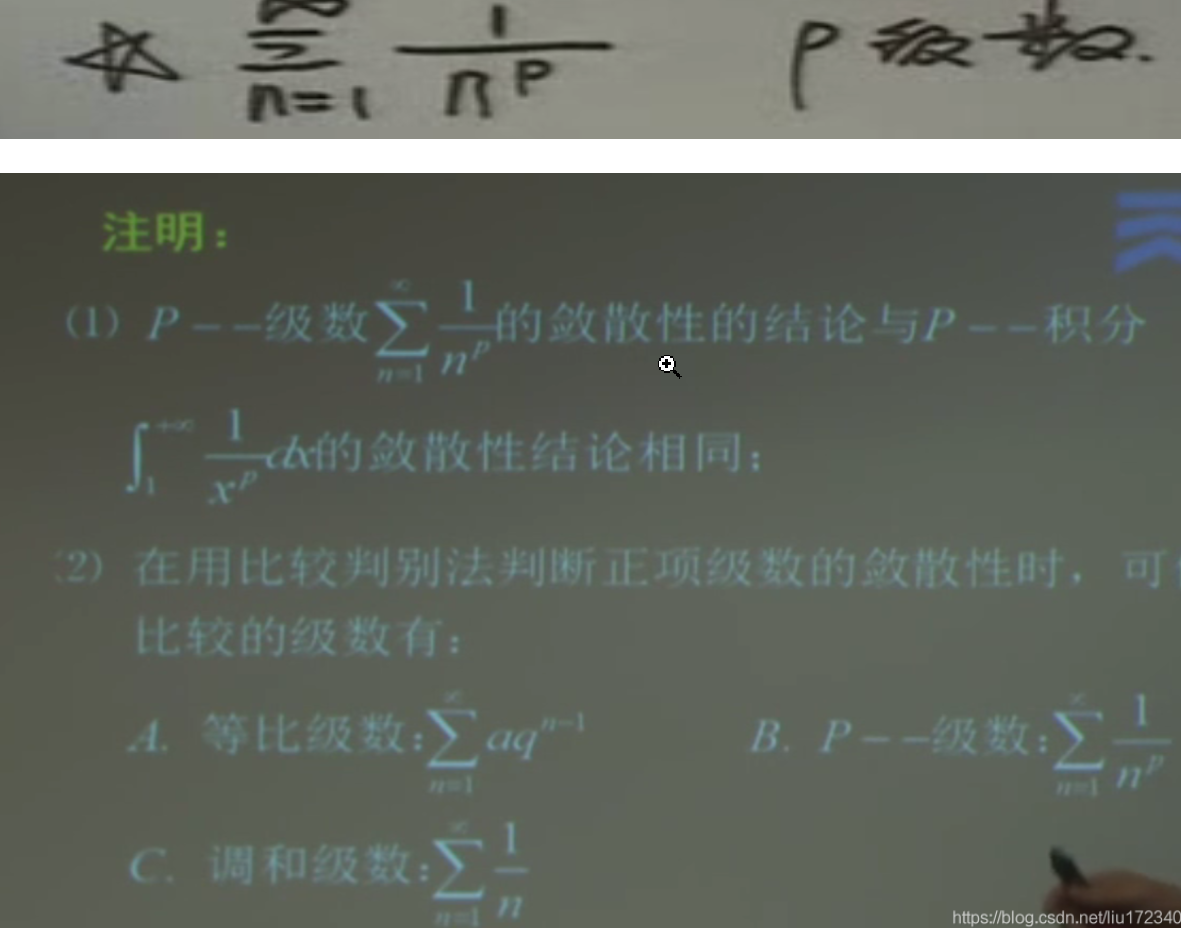 ☆ ∑_{n=1}^{∞} 1/n^p p 级数.
注明:
(1) P--级数∑_{n=1}^{∞} 1/n^p 的敛散性的结论与P--积分
∫_1^{+∞} 1/x^p dx的敛散性结论相同;
(2) 在用比较判别法判断正项级数的敛散性时, 可
比较的级数有:
A. 等比级数:∑_{n=1}^{∞} aq^{n-1} B. P--级数:∑_{n=1}^{∞} 1/n^p
C. 调和级数:∑_{n=1}^{∞} 1/n
https://blog.csdn.net/liu172340